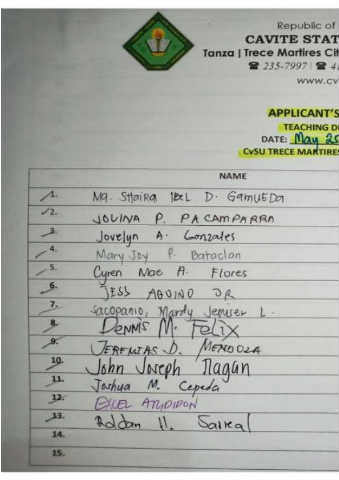 Republic of
CAVITE STAT
Tanza | Trece Martires Cit
☎ 235-7997 | ☎ 4
www.cv
APPLICANT'S
TEACHING D
DATE: May 20
CvSU TRECE MARTIRES
NAME
1. Ma. Shaira Ibel D. Gamueda
2. JOVINA P. PACAMPARRA
3. Jovelyn A. Gonzales
4. Mary Joy P. Bataclan
5. Cyren Mae A. Flores
6. JESS AQUINO JR
7. Sacopanio, Mardy Jeniser L.
8. DENNIS M. FELIX
9. JEREMIAS D. MENDOZA
10. John Joseph Ilagan
11. Joshua M. Cepeda
12.
13. Roldan U. Sarreal
14.
15.